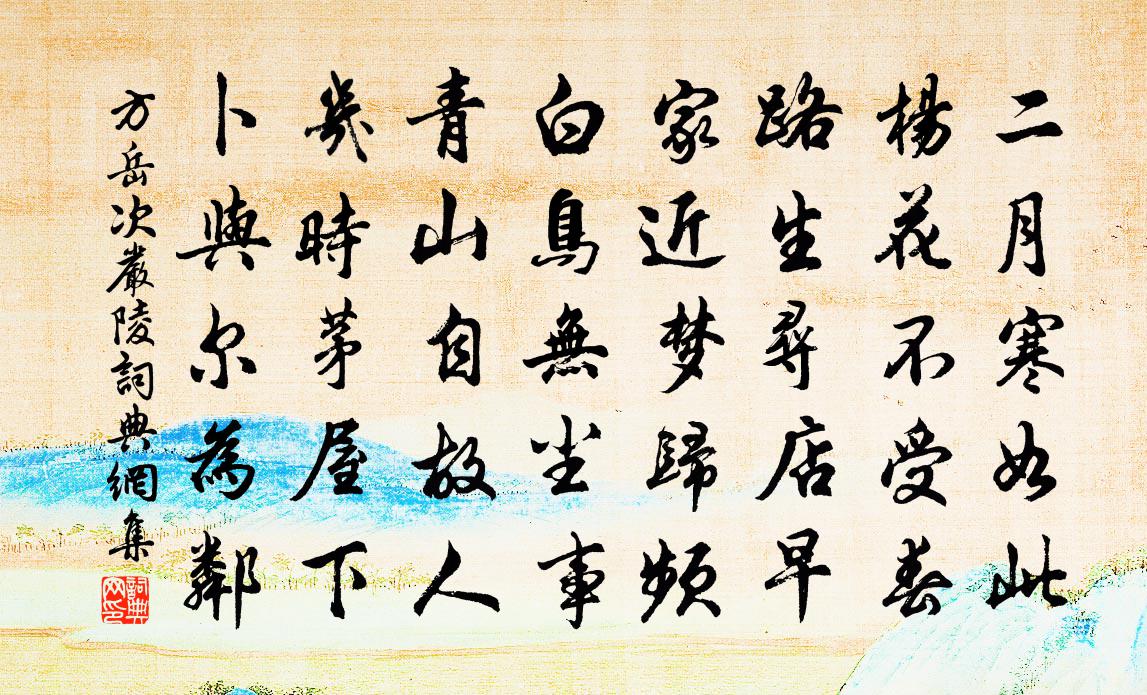 二月寒如此
楊花不受春
路生尋店早
家近梦歸頻
白鳥無塵事
青山自故人
幾時茅屋下
卜與尔為鄰
方岳次嚴陵詞典網集
詞典网印